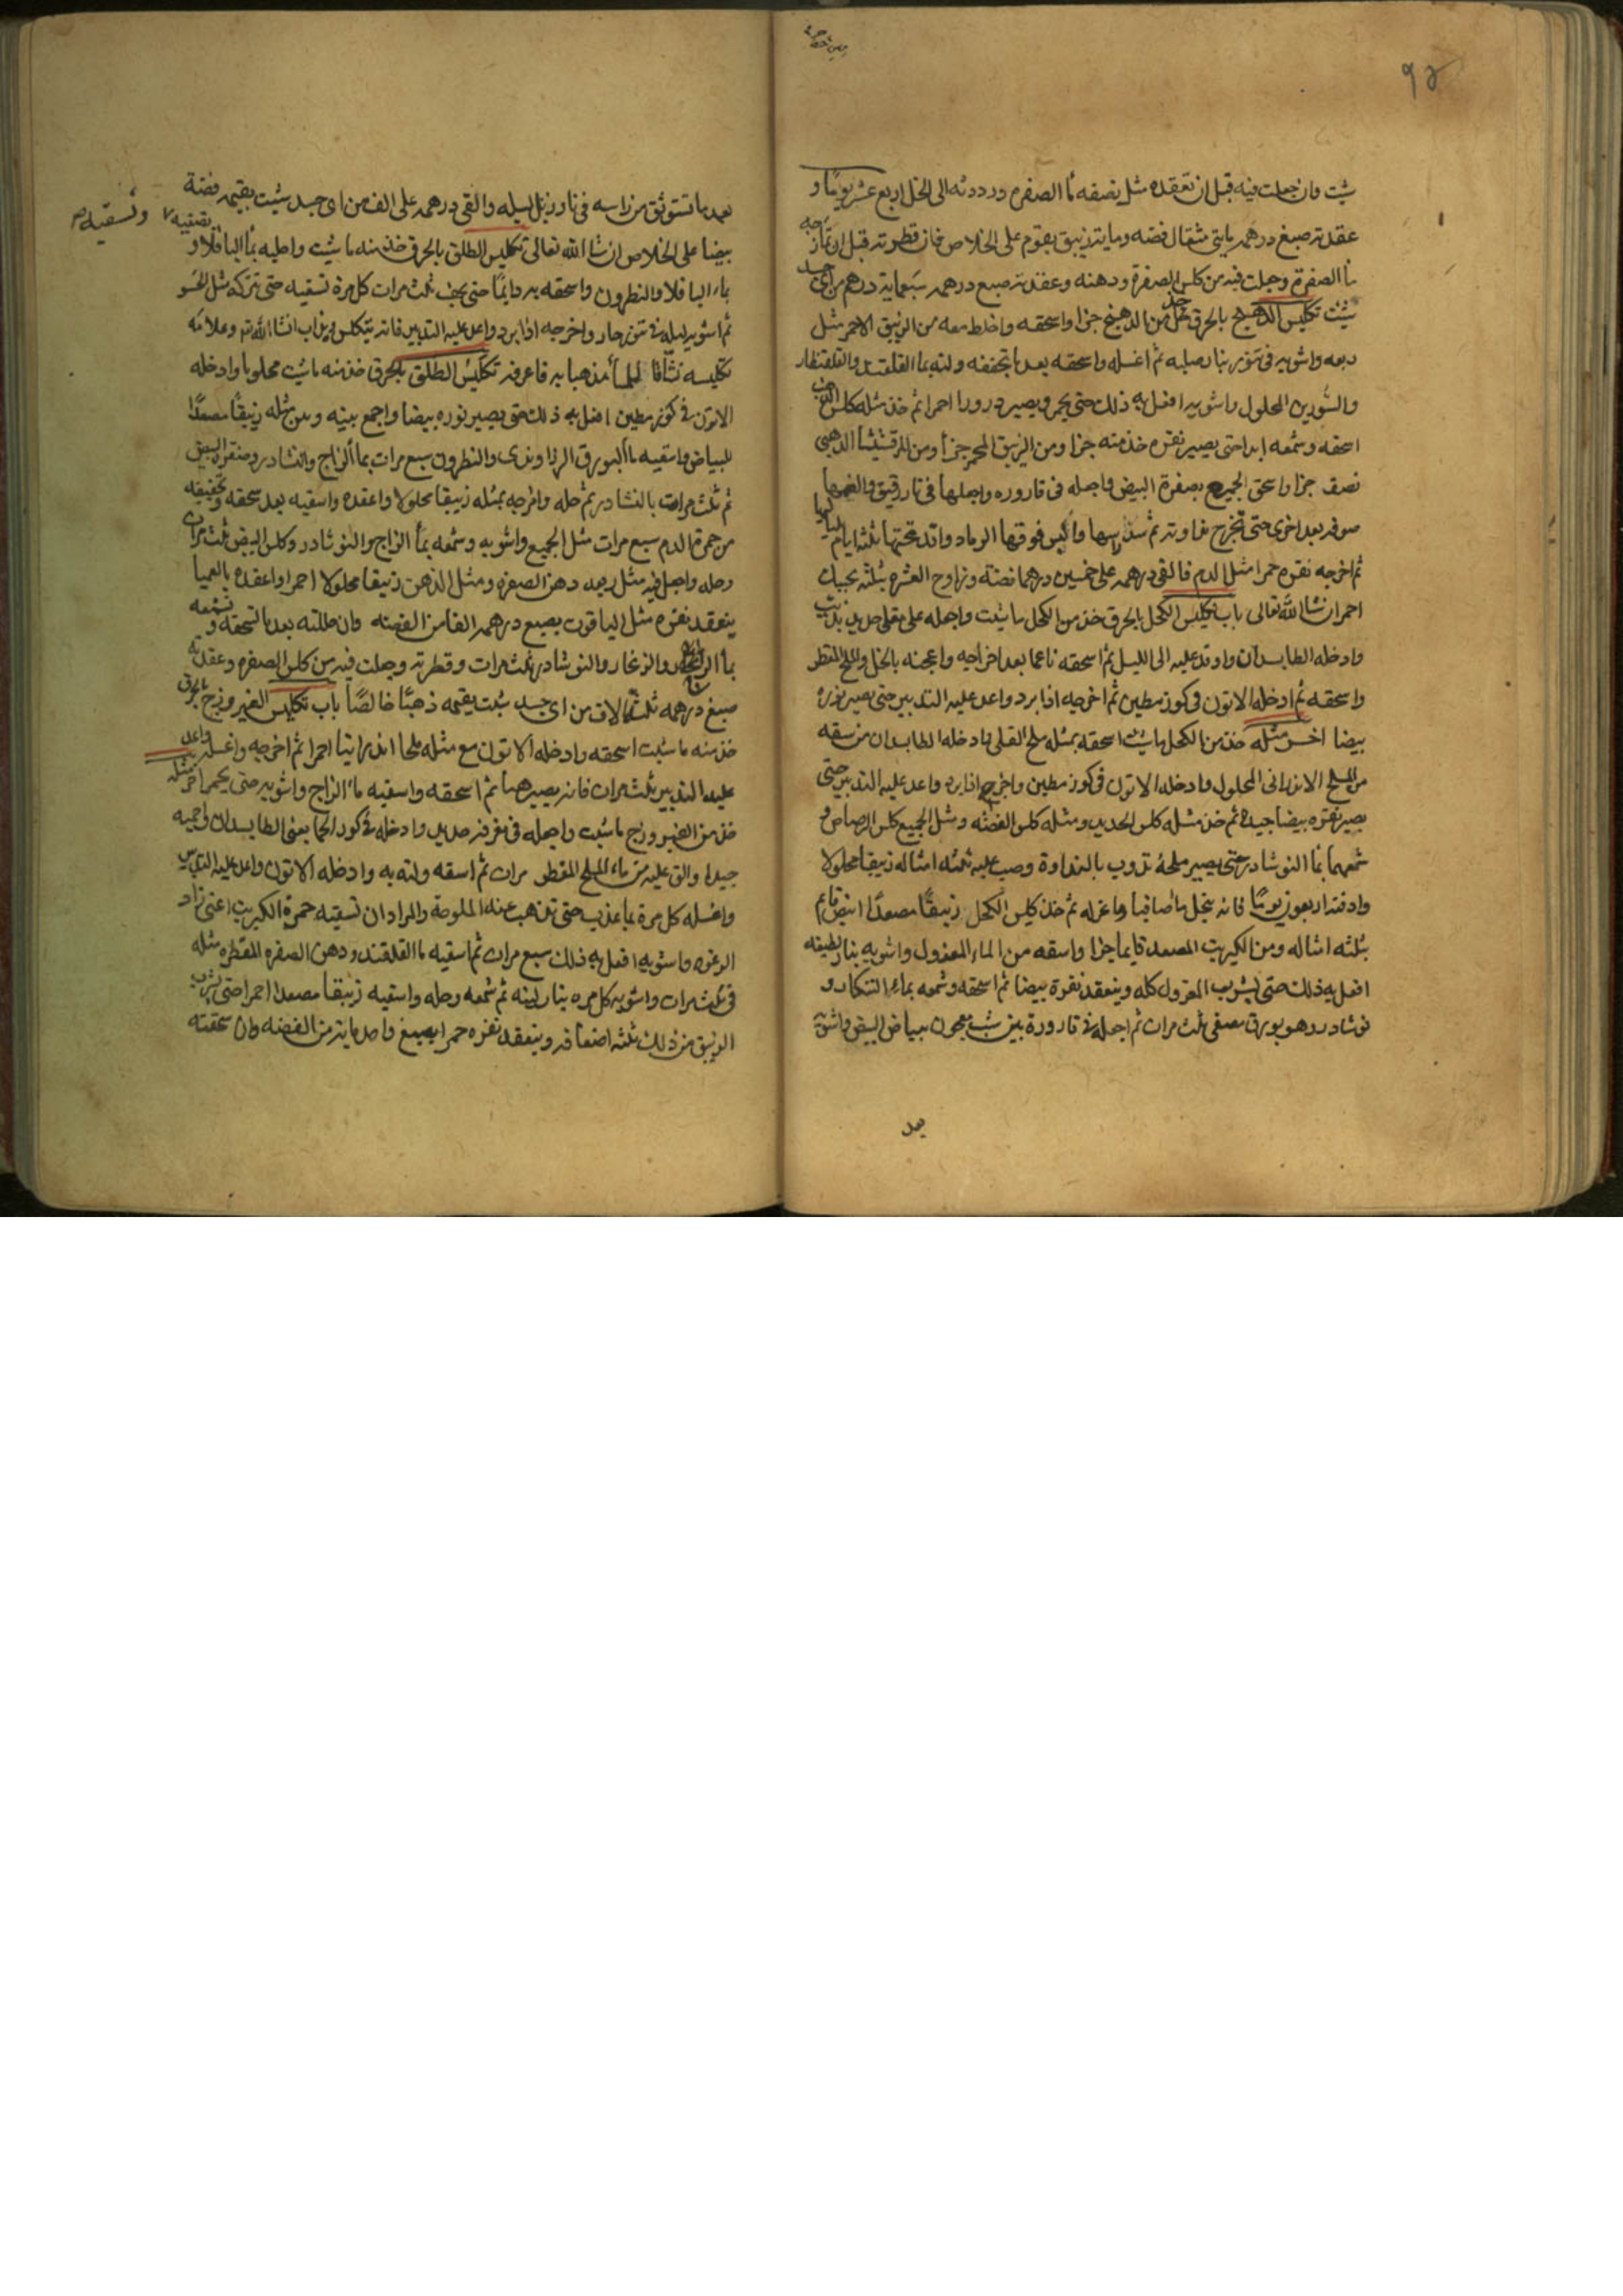 ٩٥
شيت وان جعلت فيه قبل ان تعقده مثل نصفه ما الصفره ورددته الى الخل اربع عشر يومًا و
عقدته صبغ درهمه مايتي مثقال فضه ومايه زيبق يقوم على الخلاص فان قطرته قبل ان تمازجه
ما الصفرة وجعلت فيه من كلس الصفرة ودهنه وعقدته صبع درهمه سبعمايه درهم من اي جسد
شيت تكليس الدهنج بالحرق خذ من الدهنج جزا واسحقه واخلط معه من الزيبق الاحمر مثل
ربعه واشويه في تنور بنار صلبه ثم اغسله واسحقه بعد ما تجففه ولته بما القلقند والقلقنطار
والسورين المحلول واشويه افعل به ذلك حتى يحمر ويصير درورا احمرا ثم خذ مثله كلس الذهب
اسحقه وشمعه ابدا حتى يصير نقره خذ منه جزا ومن الزيبق المحمر جزأ ومن المرقشيثا الذهبي
نصف جزا واسحق الجميع بصفرة البيض واجعله في قاروره واجعلها في نار رقيق والقمها
صوفه بعد اخرى حتى تخرج نداوته ثم سد راسها واكبس فوقها الرماد واقد تحتها ثلثه ايام لياليها
ثم اخرجه نقره حمرا مثل الدم فالقي درهمه على خمسين درهما فضة وزاوج العشره بثلثه يجيك
احمر ان شا الله تعالى باب تكليس الكحل بالحرق خذ من الكحل ما شيت واجعله على مقلى حديد بزيت
وادخله الطابسدان واوقد عليه الى الليل ثم اسحقه ناعما بعد اخراجه واعجنه بالخل والملح المقطر
واسحقه ثم ادخله الاتون في كوز مطين ثم اخرجه اذا برد واعد عليه التدبير حتى يصير نوره
بيضا اخر مثله خذ من الكحل ما شيت اسحقه بمثله ملح القلي وادخله الطابسدان من سقه
من الملح الاندراني المحلول وادخله الاتون في كوز مطين واخرجه اذا برد واعد عليه التدبير حتى
يصير نقره بيضا جيده ثم خذ مثله كلس الحديد ومثله كلس الفضه ومثل الجميع كلس الرصاص و
شمعهما بما النوشادر حتى يصير ملحة تذوب بالنداوة وصب عليه ثلثه امثاله زيبقا محلولا
وادفنه اربعون يومًا فانه ينحل ما صافيا واعزله ثم خذ كلس الكحل زيبقًا مصعدًا ابيض قايم
بثلثه امثاله ومن الكبريت المصعد قايما جزا واسقه من الماء المعزول واشويه بنار لطيفه
افعل به ذلك حتى يشرب المعزول كله وينعقد نقرة بيضا ثم اسحقه وشمعه بماء التنكار و
نوشادر وهو بورق مصفى ثلث مرات ثم اجعله في قارورة بين شب معجون ببياض البيض واشويه
بعد
بعد ما تستوثق من راسه في نار زبل ليله والقي درهمه على الف من اي جسد شيت يقيمه فضة
بيضا على الخلاص ان شا الله تعالى تكليس الطلق بالحرق خذ منه ما شيت واطليه بما الباقلا و
تصفيه وتسقيه
بماء الباقلا والنطرون واسحقه به دايمًا حتى يجف ثلث مرات كل مرة تسقيه حتى تتركه مثل الحسو
ثم اشويه ليله في تنور حار واخرجه اذا برد واعد عليه التدبير فانه يتكلس
تكليس الطلق بالحرق خذ منه ما شيت محلوبا وادخله
الاتون في كوز مطين افعل به ذلك حتى يصير نوره بيضا واجمع بينه وبين مثله زيبقًا مصعدًا
للبياض واسقيه ما البورق الراوندى والنطرون سبع مرات بما الزاج والنشادر وصفرة البيض
ثم ثلث مرات بالنشادر ثم حله وامزجه بمثله زيبقا محلولا واعقده واسقيه بعد سحقه وتجفيفه
من حمرة الدم سبع مرات مثل الجميع واشويه وشمعه بمأ الزاج والنوشادر وكلس البيض ثلث مرات
وحله واجعل فيه مثل ربعه دهن الصفره ومثل الدهن زيبقا محلولا احمرا واعقده بالعميا
ينعقد نقره مثل الياقوت يصبغ درهمه الفا من الفضه وان حللته بعد ما تسحقه وتشمعه
بما الزاج والزنجار والنوشادر ثلث مرات وقطرته وجعلت فيه من كلس الصفره وعقدته
صبغ درهمه ثلثة الاف من اي جسد شيت يقيمه ذهبًا خالصًا باب تكليس الفيروزج بالحرق
خذ منه ما شيت اسحقه وادخله الاتون مع مثله ملحا اندرانيا احمرا ثم اخرجه واغسله واعد
عليه التدبير ثلث مرات فانه يصير هبا ثم اسحقه واسقيه ماء الزاج واشويه حتى يحمر اخر مثله
خذ من الفيروزج ما شيت واجعله في مغرفه حديد وادخله في كور الحما يعني الطابسدان واحميه
جيدا والق عليه من ماء الملح المقطر مرات ثم اسقه ولته به وادخله الاتون واعد عليه التدبير
واغسله كل مرة بما عذب حتى تذهب عنه الملوحة والمراد ان تسقيه حمرة الكبريت اعني زاد
الرغوه واشويه افعل به ذلك سبع مرات ثم اسقيه ما القلقند ودهن الصفره المقطره مثله
في ثلث مرات واشويه كل مره بنار لينه ثم شمعه وحله واسقيه زيبقا مصعدا احمرا حتى يشرب
الزيبق من ذلك ثلثه اضعافه وينعقد نقره حمرا يصبغ واحد مايه من الفضه وان سحقته